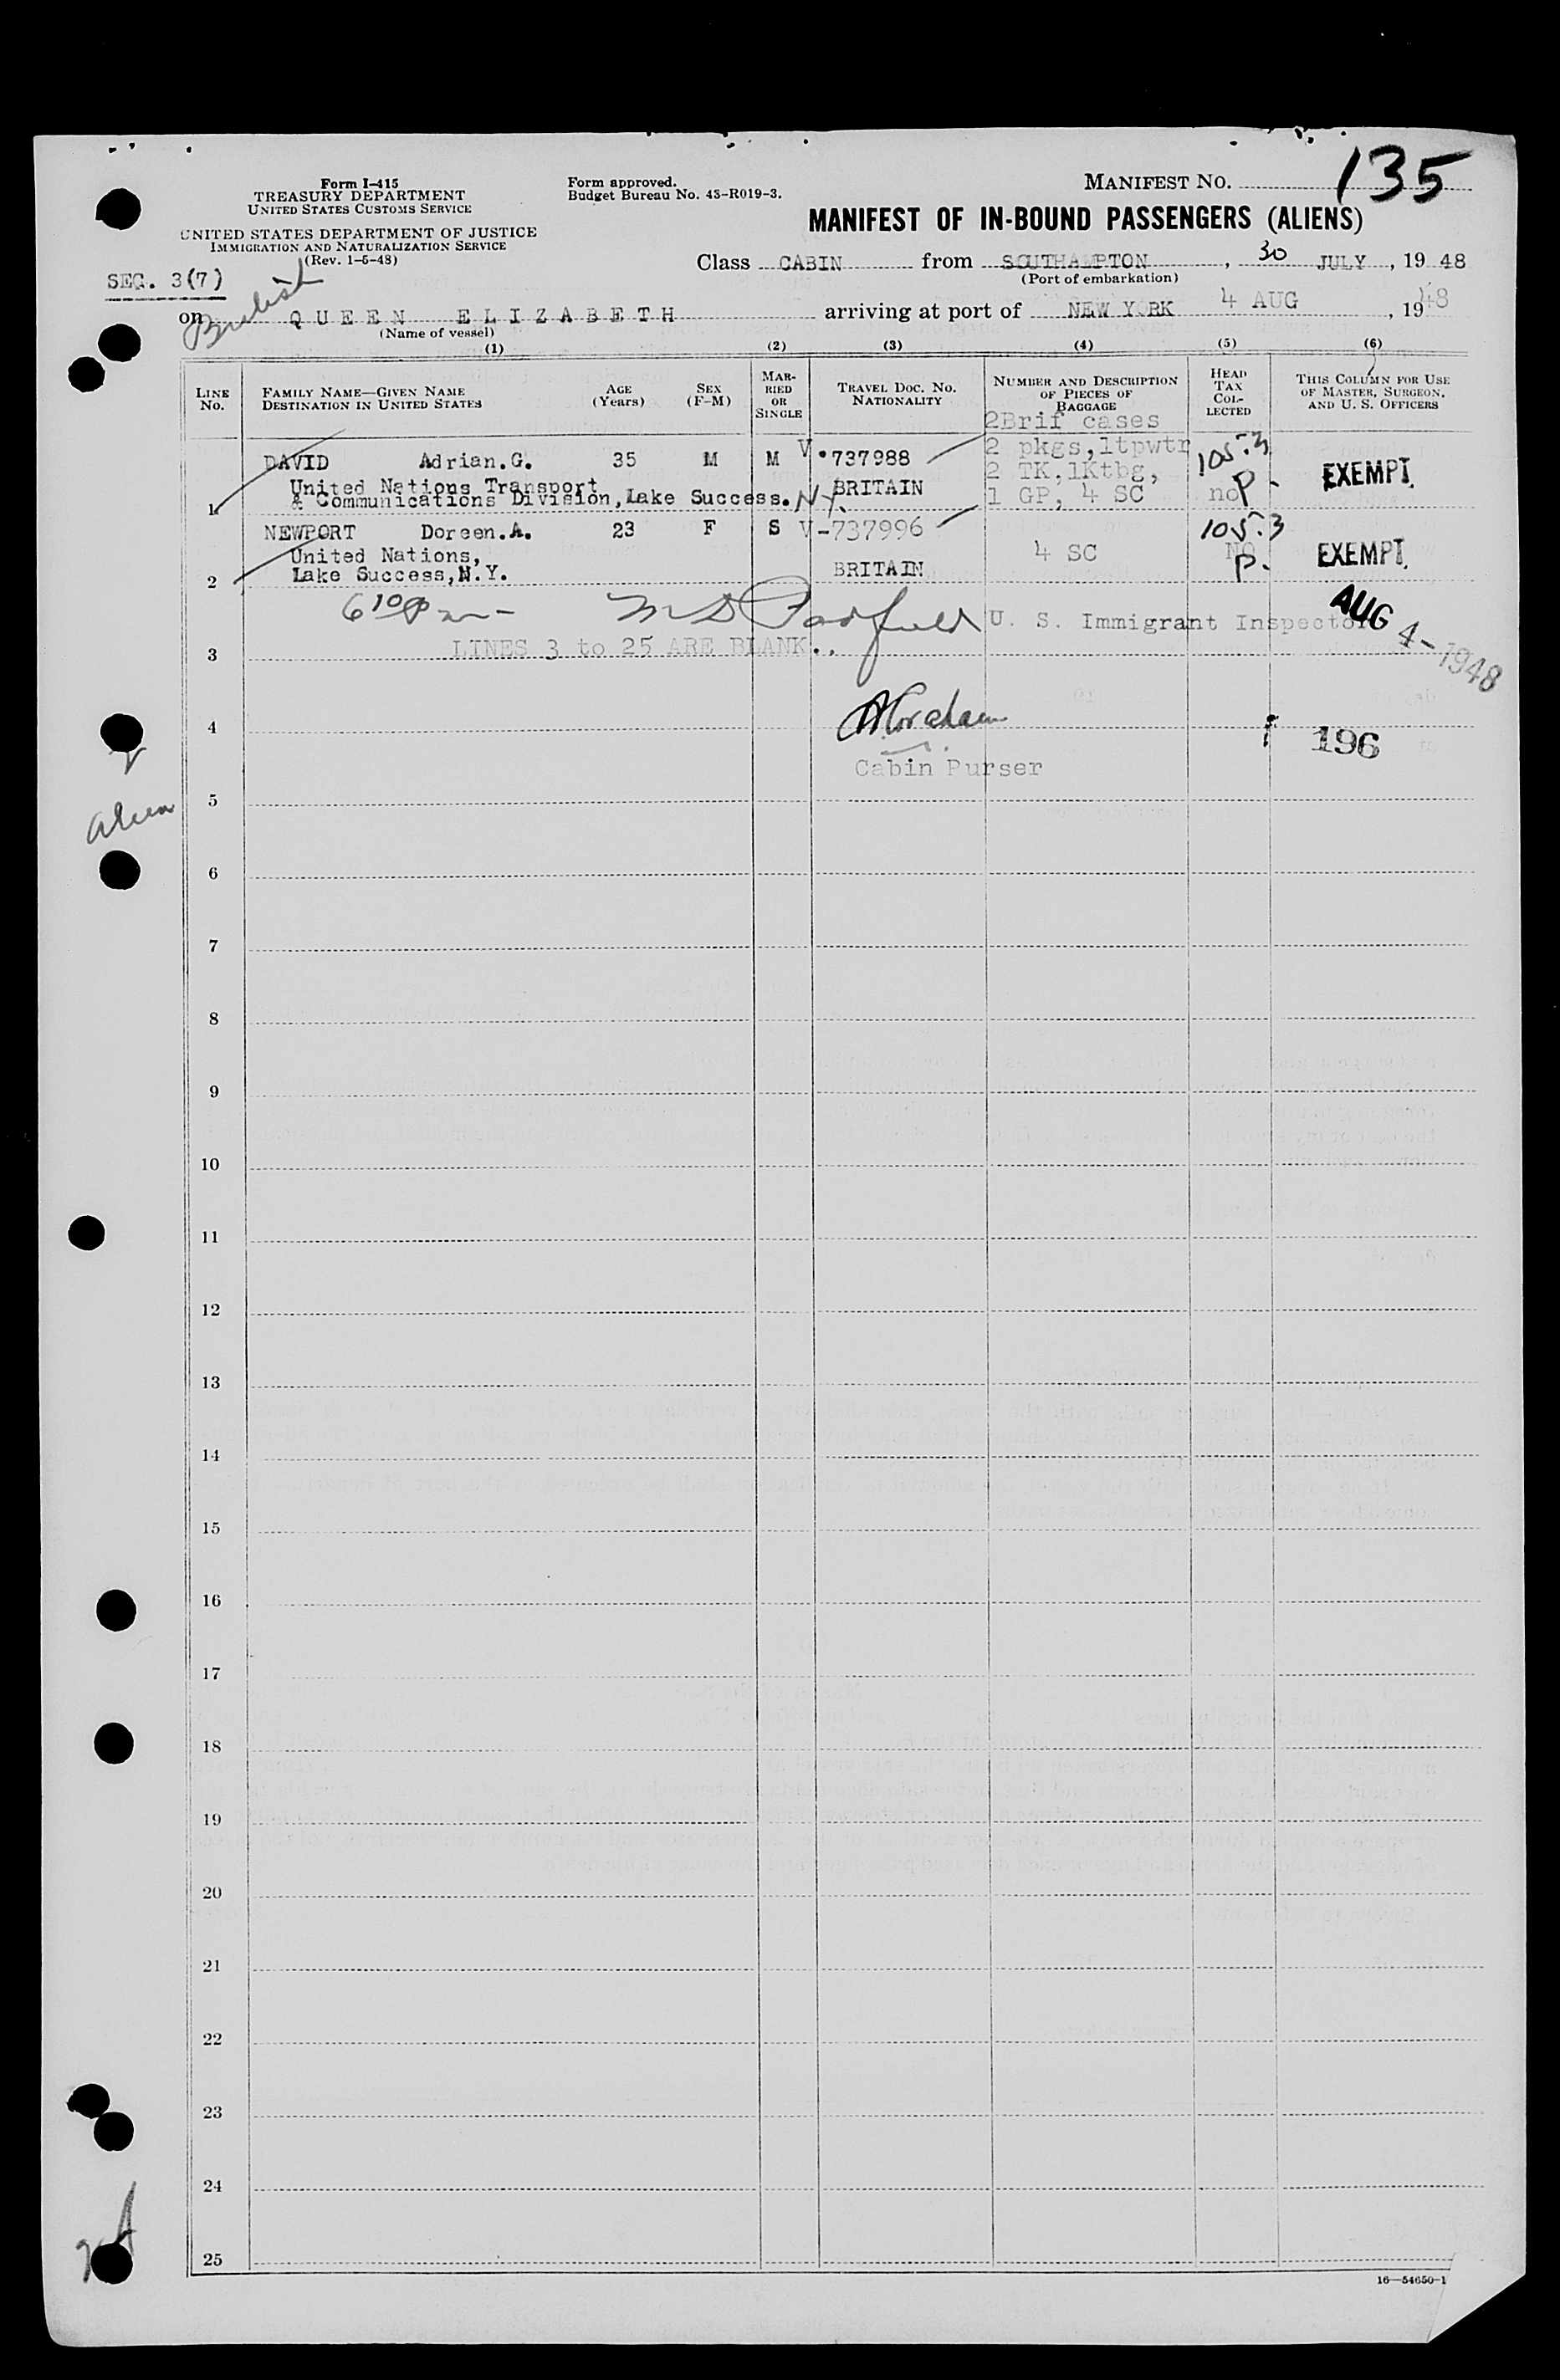 135
Form I-415
TREASURY DEPARTMENT
UNITED STATES CUSTOMS SERVICE
UNITED STATES DEPARTMENT OF JUSTICE
IMMIGRATION AND NATURALIZATION SERVICE
(Rev. 1-5-48)
Form approved.
Budget Bureau No. 43-R019-3.
MANIFEST NO.
MANIFEST OF IN-BOUND PASSENGERS (ALIENS)
SEC. 3(7)
British
Class CABIN from SOUTHAMPTON, 30 JULY, 19 48
(Port of embarkation)
on QUEEN ELIZABETH arriving at port of NEW YORK 4 AUG, 19 48
(Name of vessel)
(1) (2) (3) (4) (5) (6)
LINE NO.
FAMILY NAME—GIVEN NAME
DESTINATION IN UNITED STATES
AGE (Years)
SEX (F-M)
MARRIED OR SINGLE
TRAVEL DOC. NO.
NATIONALITY
NUMBER AND DESCRIPTION OF PIECES OF BAGGAGE
HEAD TAX COLLECTED
THIS COLUMN FOR USE OF MASTER, SURGEON, AND U. S. OFFICERS
2Brif cases
DAVID Adrian.G. 35 M M V 737988 2 pkgs,1tpwtr 105.3
2 TK,1Ktbg, EXEMPT.
United Nations Transport BRITAIN
1 & Communications Division,Lake Success. N.Y. 1 GP, 4 SC no P.
NEWPORT Doreen.A. 23 F S V-737996 105.3
United Nations, 4 SC NO EXEMPT.
2 Lake Success,N.Y. BRITAIN P.
6 10 pm U. S. Immigrant Inspector AUG 4-1948
3 LINES 3 to 25 ARE BLANK..
4 196
Cabin Purser
5
alien
6
7
8
9
10
11
12
13
14
15
16
17
18
19
20
21
22
23
24
25
16—54650-1